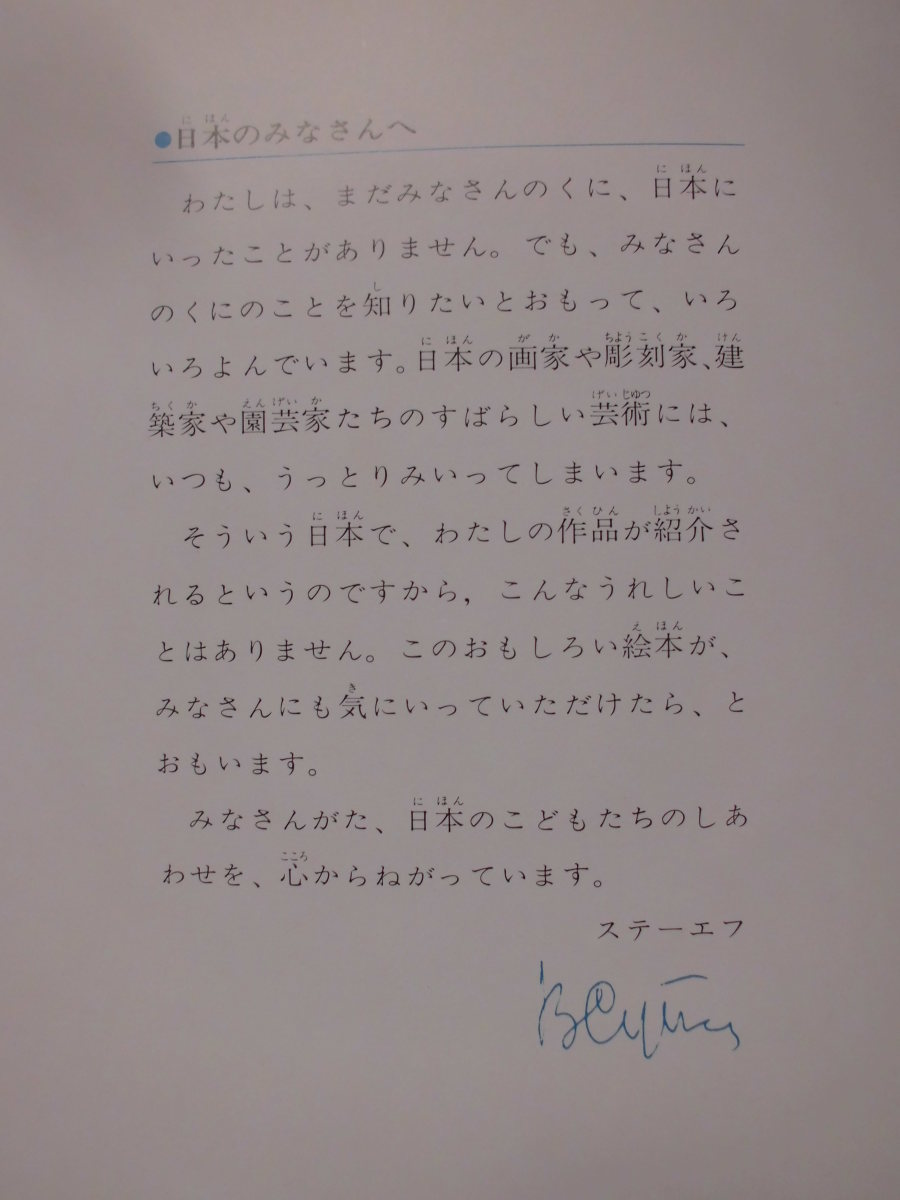 ●日本のみなさんへ
わたしは、まだみなさんのくに、日本に
いったことがありません。でも、みなさん
のくにのことを知りたいとおもって、いろ
いろよんでいます。日本の画家や彫刻家、建
築家や園芸家たちのすばらしい芸術には、
いつも、うっとりみいってしまいます。
そういう日本で、わたしの作品が紹介さ
れるというのですから，こんなうれしいこ
とはありません。このおもしろい絵本が、
みなさんにも気にいっていただけたら、と
おもいます。
みなさんがた、日本のこどもたちのしあ
わせを、心からねがっています。
ステーエフ